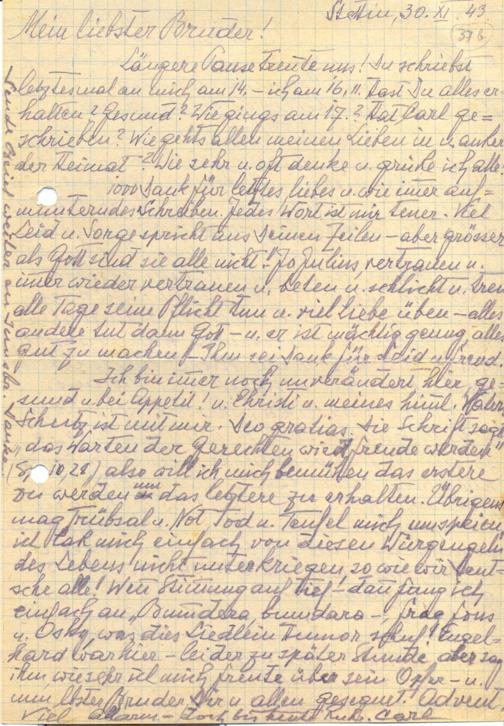 Stettin, 30. XI. 43.
(376)
Mein liebster Bruder!
Längere Pause freute uns! Du schriebst
letztesmal an mich am 14. - ich am 16. 11. Hast Du alles er-
halten? Gesund? Wie gings am 17.? Hat Carl ge-
schrieben? Wie gehts allen meinen Lieben in u. ausser
der Heimat? Wie sehr u. oft denke u. grüße ich alle.
1000 Dank für letztes liebes u. wie imer auf-
munterndes Schreiben. Jedes Wort ist mir teuer. Viel
Leid u. Sorge spricht aus Deinen Zeilen - aber grösser
als Gott sind sie alle nicht! vertrauen u.
imer wieder vertrauen u. beten u. schlicht u. treu
alle Tage seine Pflicht tun u. viel Liebe üben - alles
andere tut dann Gott - u. er ist mächtig genug alles
gut zu machen! Ihm sei Dank für Leid u. Freud.
Ich bin imer noch unverändert hier, ge-
sund u. bei Appetit! u. Christi u. meines himl.
Schutz ist mit mir. Deo gratias. Die Schrift sagt
"das Warten der Gerechten wird Freude werden"
(Spr. 10,28) also will ich mich bemühen das erstere
zu werden um das letztere zu erhalten. Übrigens
mag Trübsal u. Not, Tod u. Teufel mich umspeien
ich mich einfach von diesen Würgengeln
des Lebens nicht unterkriegen, so wie wir Deut-
sche alle! Wen Stimung auf tief - dan fang ich
einfach an, "Bumdera bumdara -", frag
u. was dies Liedlein Humor schuf! Engel-
hard war hier - leider zu später Stunde, aber sag
ihm wie sehr ich mich freute über sein Opfer - u.
nun lbster Bruder Dir u. allen gesegnet! Advent
Viel Carl